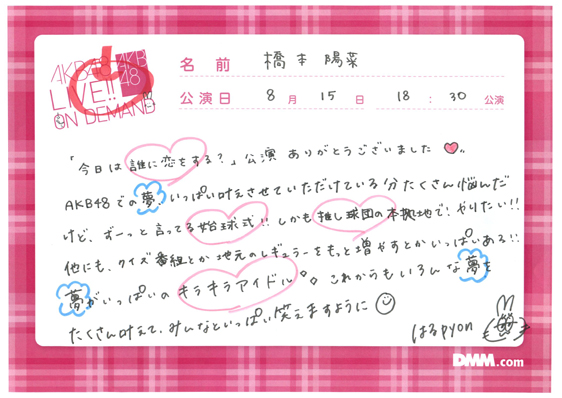 AKB48
LIVE!!
ON DEMAND
AKB
48
名前 橋本 陽菜
公演日 8月 15日 18:30 公演
「今日は誰に恋をする？」公演 ありがとうございました♡
AKB48での夢、いっぱい叶えさせていただけている分たくさん悩んだ
けど、ずーっと言ってる始球式!! しかも推し球団の本拠地で！やりたい!!
他にも、クイズ番組とか地元のレギュラーをもっと増やすとかいっぱいある!!
夢がいっぱいのキラキラアイドル。。これからもいろんな夢を
たくさん叶えて、みんなといっぱい笑えますように☺
はるpyon
DMM.com